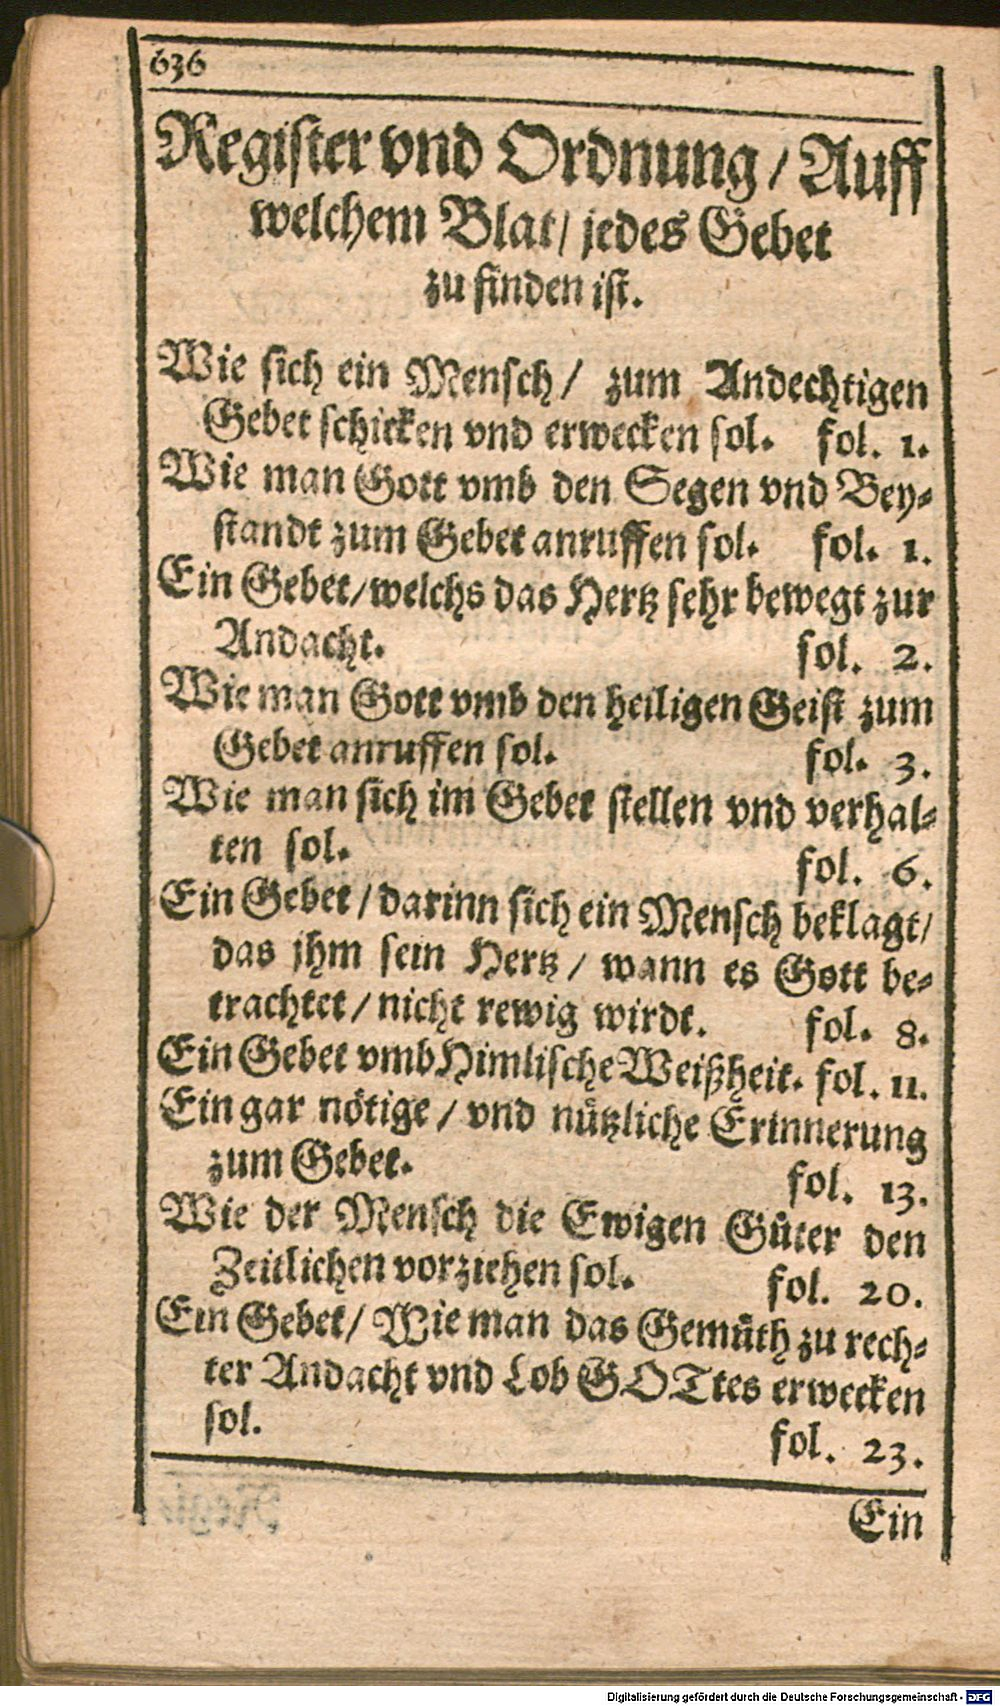 636
Register vnd Ordnung / Auff
welchem Blat / jedes Gebet
zu finden ist.
Wie sich ein Mensch / zum Andechtigen
Gebet schicken vnd erwecken sol. fol. 1.
Wie man Gott vmb den Segen vnd Bey-
standt zum Gebet anruffen sol. fol. 1.
Ein Gebet / welchs das Hertz sehr bewegt zur
Andacht. fol. 2.
Wie man Gott vmb den heiligen Geist zum
Gebet anruffen sol. fol. 3.
Wie man sich im Gebet stellen vnd verhal-
ten sol. fol. 6.
Ein Gebet / darinn sich ein Mensch beklagt /
das jhm sein Hertz / wann es Gott be-
trachtet / nicht rewig wirdt. fol. 8.
Ein Gebet vmb Himlische Weißheit. fol. 11.
Ein gar nötige / vnd nützliche Erinnerung
zum Gebet. fol. 13.
Wie der Mensch die Ewigen Güter den
Zeitlichen vorziehen sol. fol. 20.
Ein Gebet / Wie man das Gemüth zu rech-
ter Andacht vnd Lob GOTtes erwecken
sol. fol. 23.
Ein
Digitalisierung gefördert durch die Deutsche Forschungsgemeinschaft - DFG